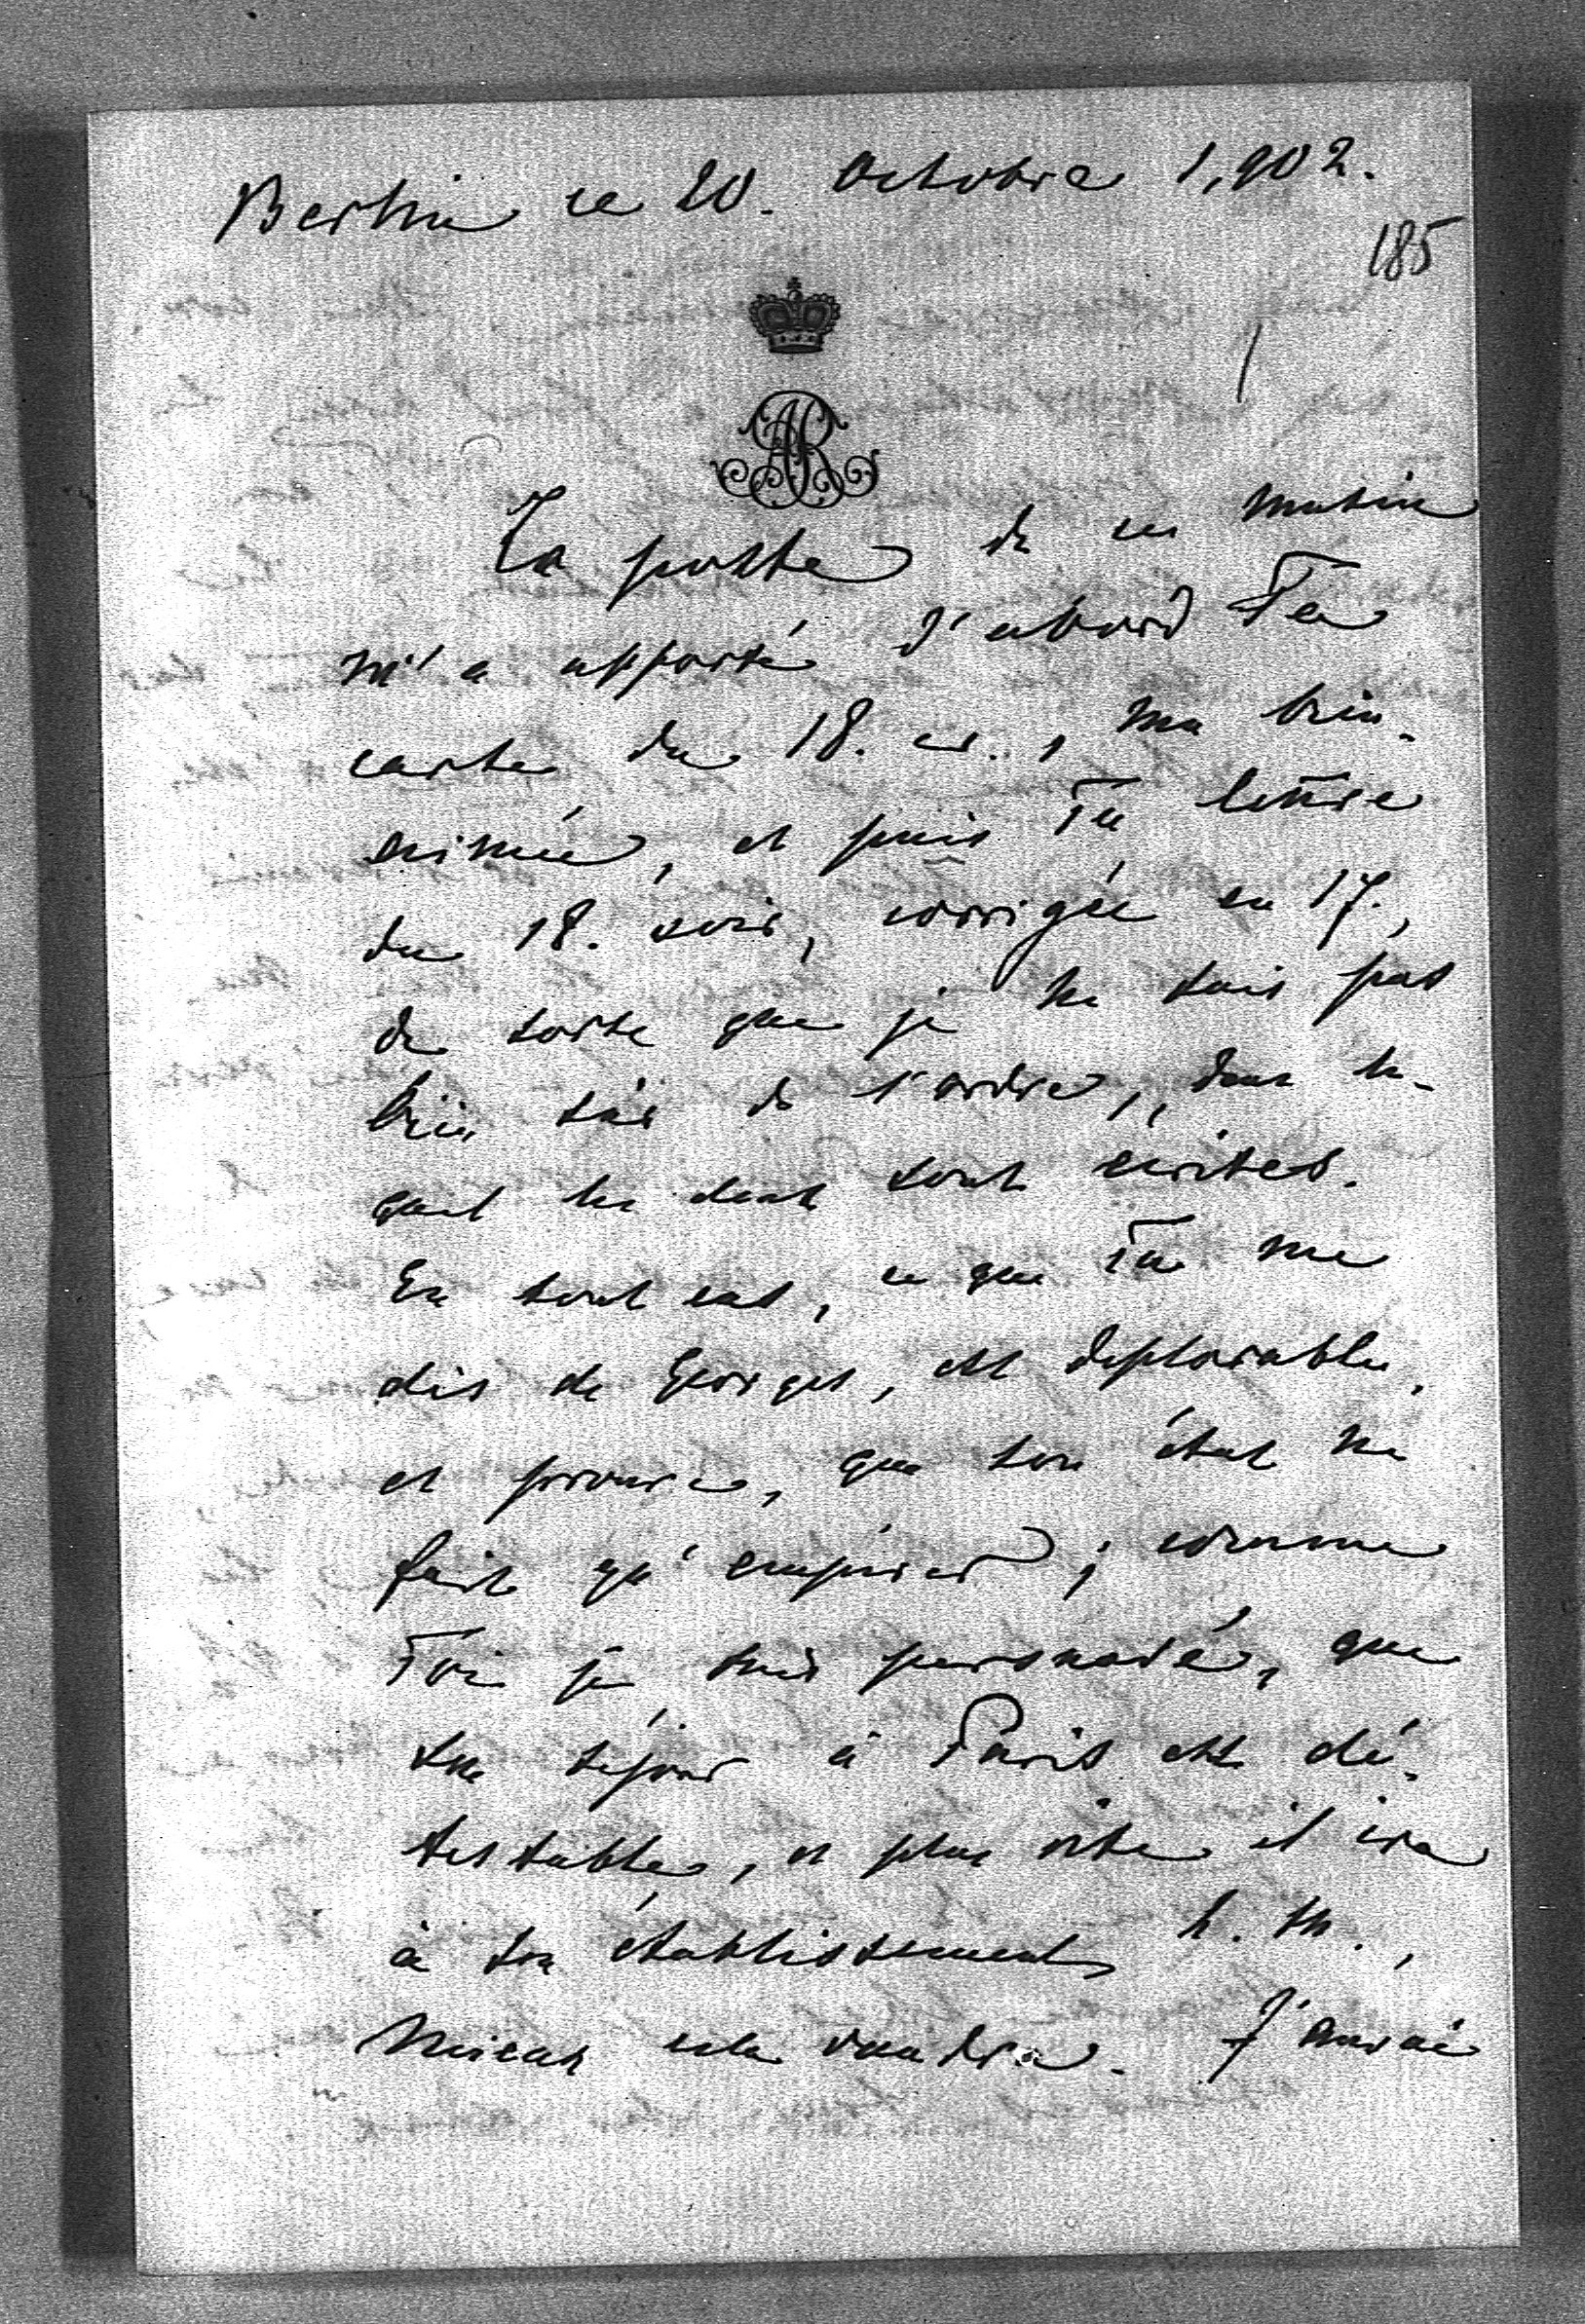 Berlin ce 20. Octobre 1,902.
185
AR
La poste de ce matin
m'a apporté d'abord Ta
carte du 18. cr., ma bien-
aimée, et puis Ta lettre
du 18. soir, corrigée en 17.,
de sorte que je ne suis pas
bien sûr de l'ordre, dans le-
quel les deux sont écrites.
En tout cas, ce que Tu me
dis de Georges, est déplorable,
et prouve, que son état ne
fait qu'empirer; comme
Toi je suis persuadé, que
son séjour à Paris est dé-
testable, et plus vite il ira
à son établissement h. m.,
mieux cela vaudra. J'aurai